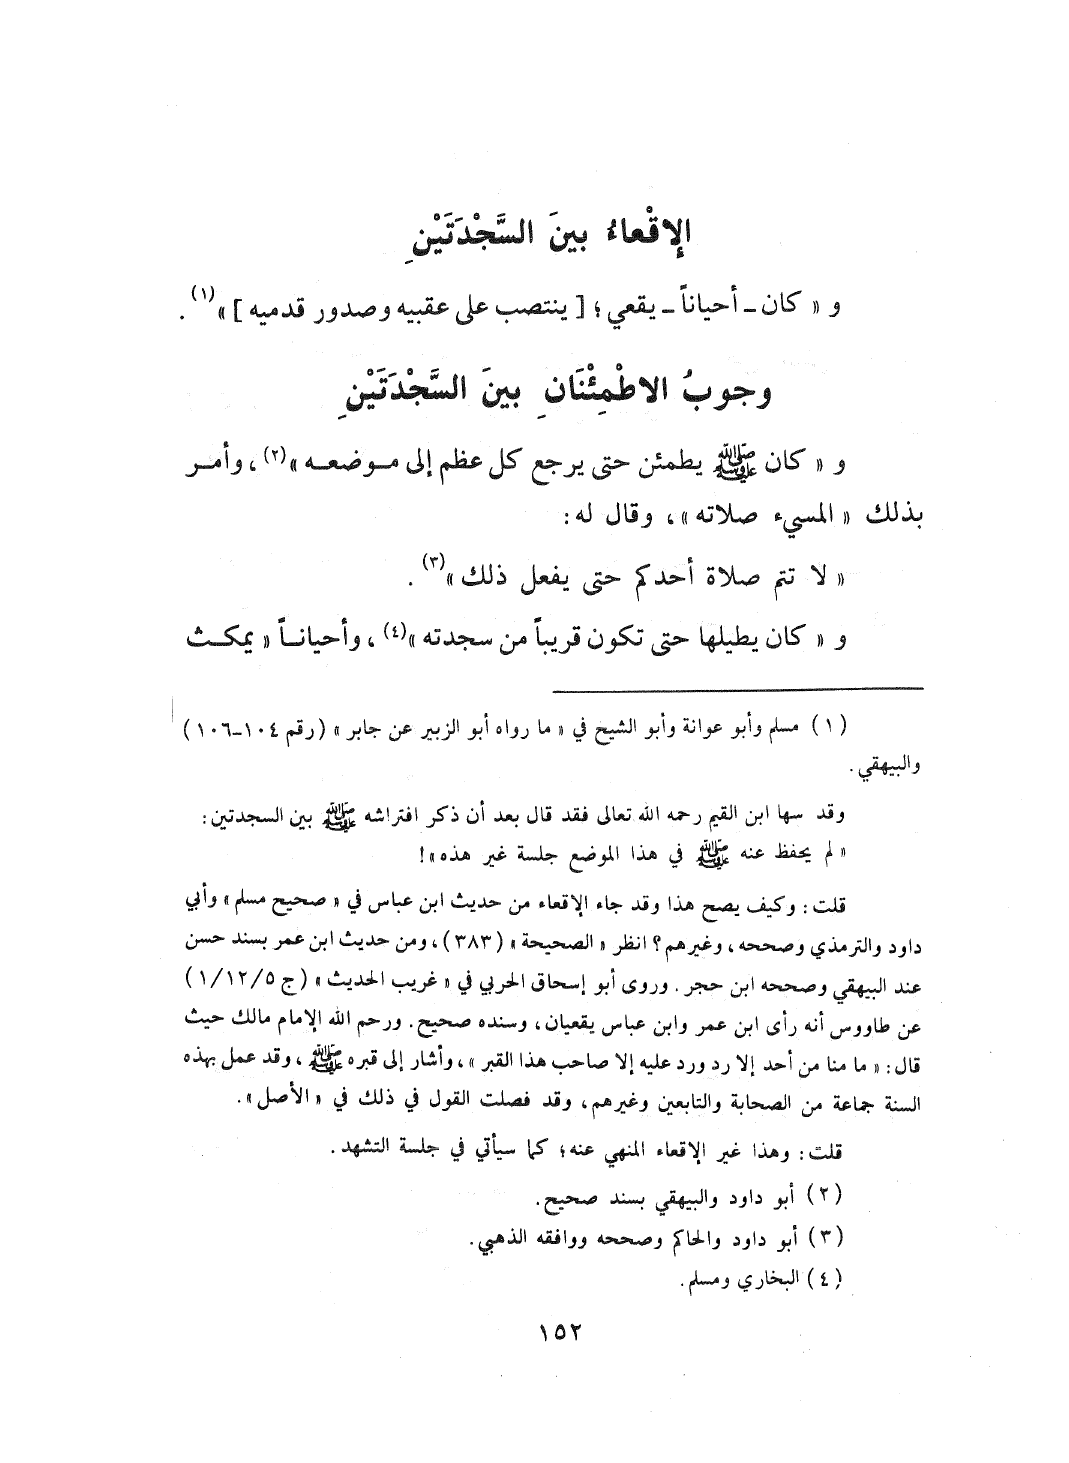 الإقْعاءُ بينَ السَّجْدَتَيْنِ
و « كان ـ أحياناً ـ يقعي ؛ [ ينتصب على عقبيه وصدور قدميه ] »(١) .
وجوبُ الاطْمِئْنَانِ بينَ السَّجْدَتَيْنِ
و « كان ﷺ يطمئن حتى يرجع كل عظم إلى موضعه »(٢) ، وأمر
بذلك « المسيء صلاته » ، وقال له :
« لا تتم صلاة أحدكم حتى يفعل ذلك »(٣) .
و « كان يطيلها حتى تكون قريباً من سجدته »(٤) ، وأحياناً « يمكث
(١) مسلم وأبو عوانة وأبو الشيخ في « ما رواه أبو الزبير عن جابر » (رقم ١٠٤-١٠٦)
والبيهقي .
وقد سها ابن القيم رحمه الله تعالى فقد قال بعد أن ذكر افتراشه ﷺ بين السجدتين :
« لم يحفظ عنه ﷺ في هذا الموضع جلسة غير هذه » !
قلت : وكيف يصح هذا وقد جاء الإقعاء من حديث ابن عباس في « صحيح مسلم » وأبي
داود والترمذي وصححه ، وغيرهم ؟ انظر « الصحيحة » (٣٨٣) ، ومن حديث ابن عمر بسند حسن
عند البيهقي وصححه ابن حجر . وروى أبو إسحاق الحربي في « غريب الحديث » (ج ٥/١٢/١)
عن طاووس أنه رأى ابن عمر وابن عباس يقعيان ، وسنده صحيح . ورحم الله الإمام مالك حيث
قال : « ما منا من أحد إلا رد ورد عليه إلا صاحب هذا القبر » ، وأشار إلى قبره ﷺ ، وقد عمل بهذه
السنة جماعة من الصحابة والتابعين وغيرهم ، وقد فصلت القول في ذلك في « الأصل » .
قلت : وهذا غير الإقعاء المنهي عنه ؛ كما سيأتي في جلسة التشهد .
(٢) أبو داود والبيهقي بسند صحيح .
(٣) أبو داود والحاكم وصححه ووافقه الذهبي .
(٤) البخاري ومسلم .
١٥٢